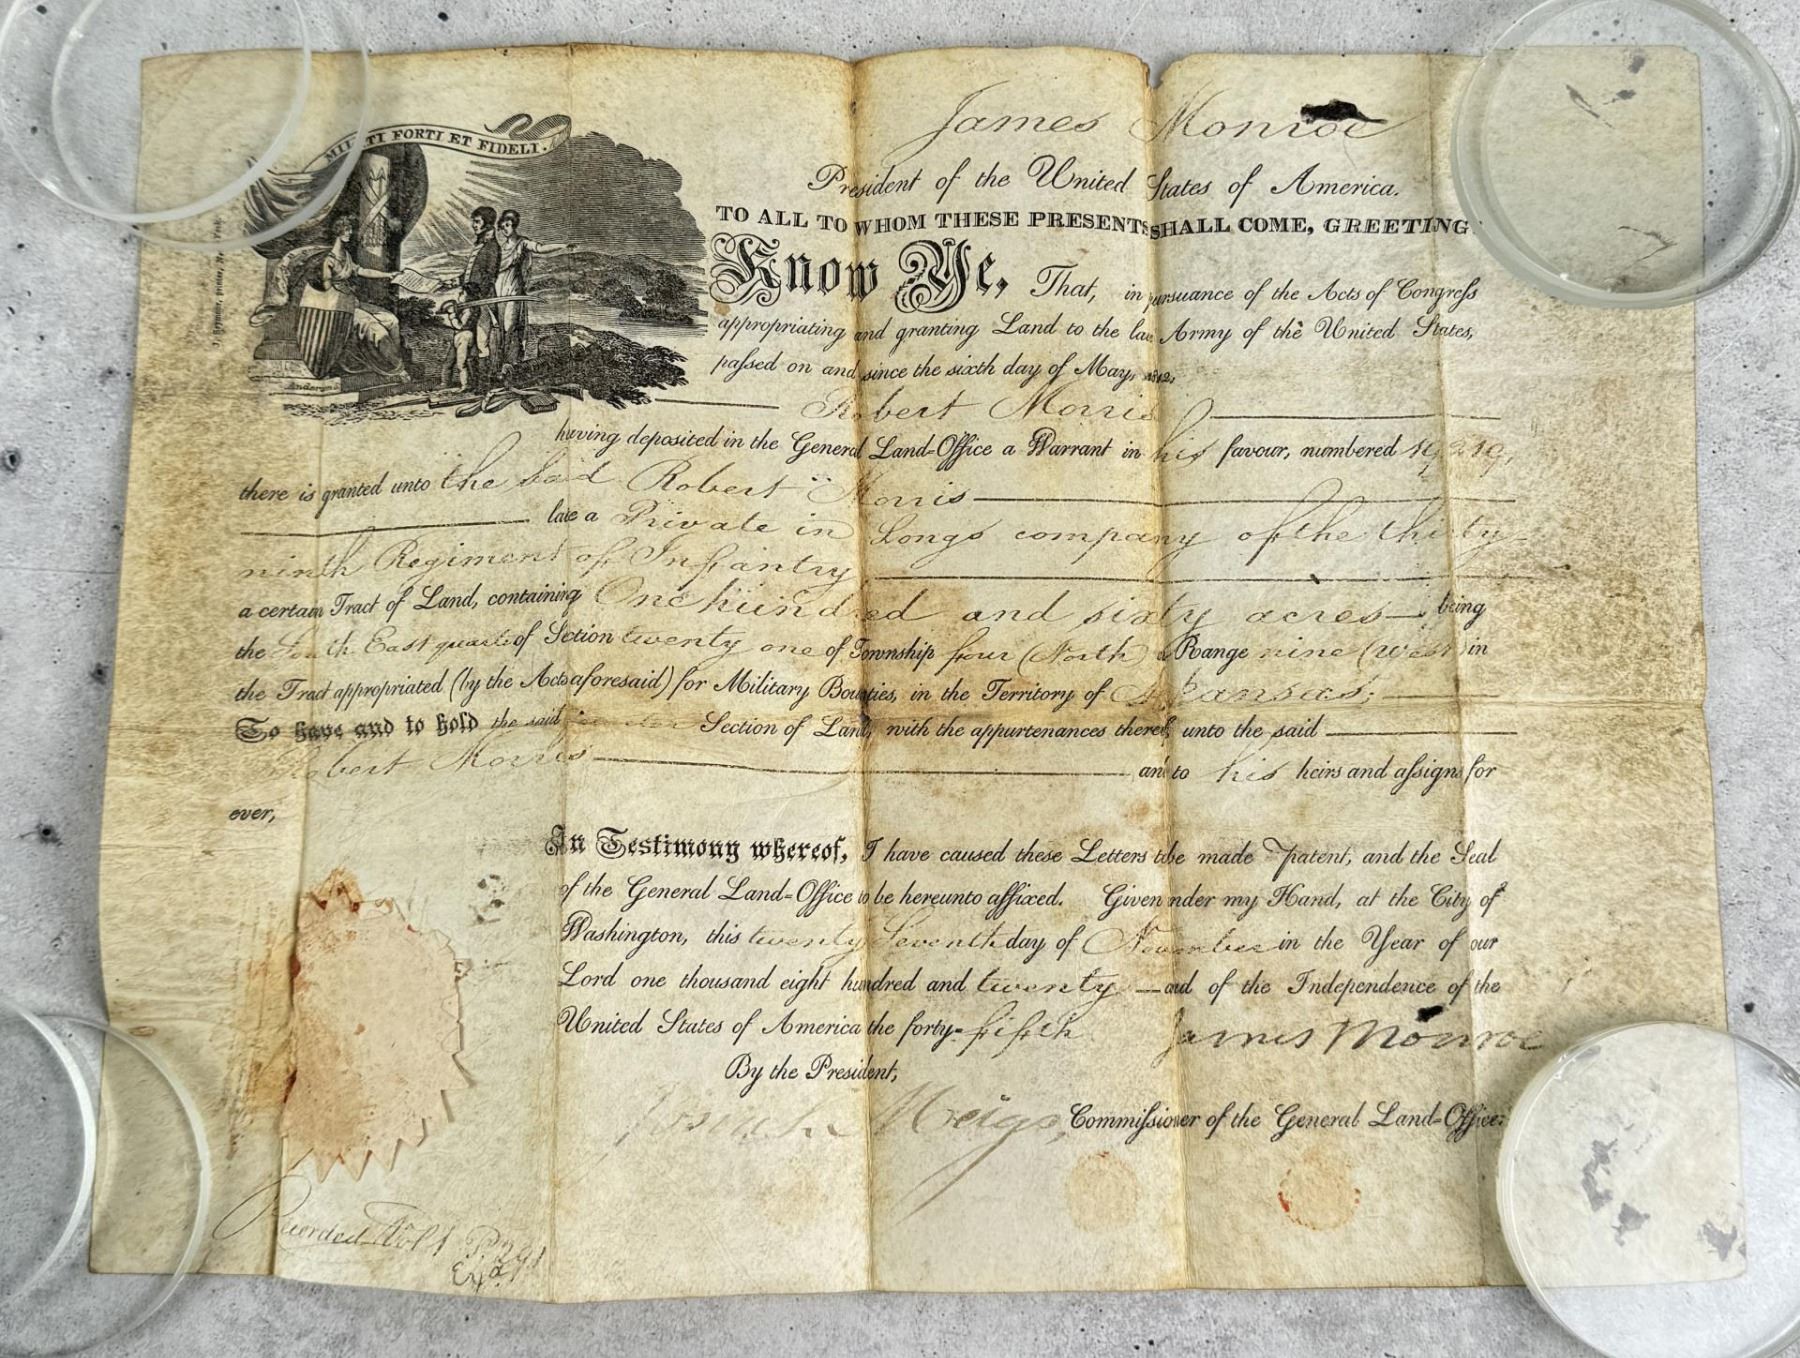 MILITI FORTI ET FIDELI.
Anderson
James Monroe
President of the United States of America.
TO ALL TO WHOM THESE PRESENTS SHALL COME, GREETING:
Know Ye, That, in pursuance of the Acts of Congress
appropriating and granting Land to the late Army of the United States,
passed on and since the sixth day of May, 1812,
Robert Morris
having deposited in the General Land-Office a Warrant in his favour, numbered
there is granted unto the said Robert Morris
late a Private in Longs company of the thirty
ninth Regiment of Infantry
a certain Tract of Land, containing One hundred and sixty acres being
the South East quarter of Section twenty one of Township four (North) Range nine (west) in
the Tract appropriated (by the Acts aforesaid) for Military Bounties, in the Territory of Arkansas;
To have and to hold the said quarter Section of Land, with the appurtenances thereof, unto the said
Robert Morris and to his heirs and assigns for
ever,
In Testimony whereof, I have caused these Letters to be made Patent, and the Seal
of the General Land-Office to be hereunto affixed. Given under my Hand, at the City of
Washington, this twenty Seventh day of November in the Year of our
Lord one thousand eight hundred and twenty and of the Independence of the
United States of America the forty-fifth
James Monroe
By the President,
Josiah Meigs, Commissioner of the General Land-Office.
Recorded Vol